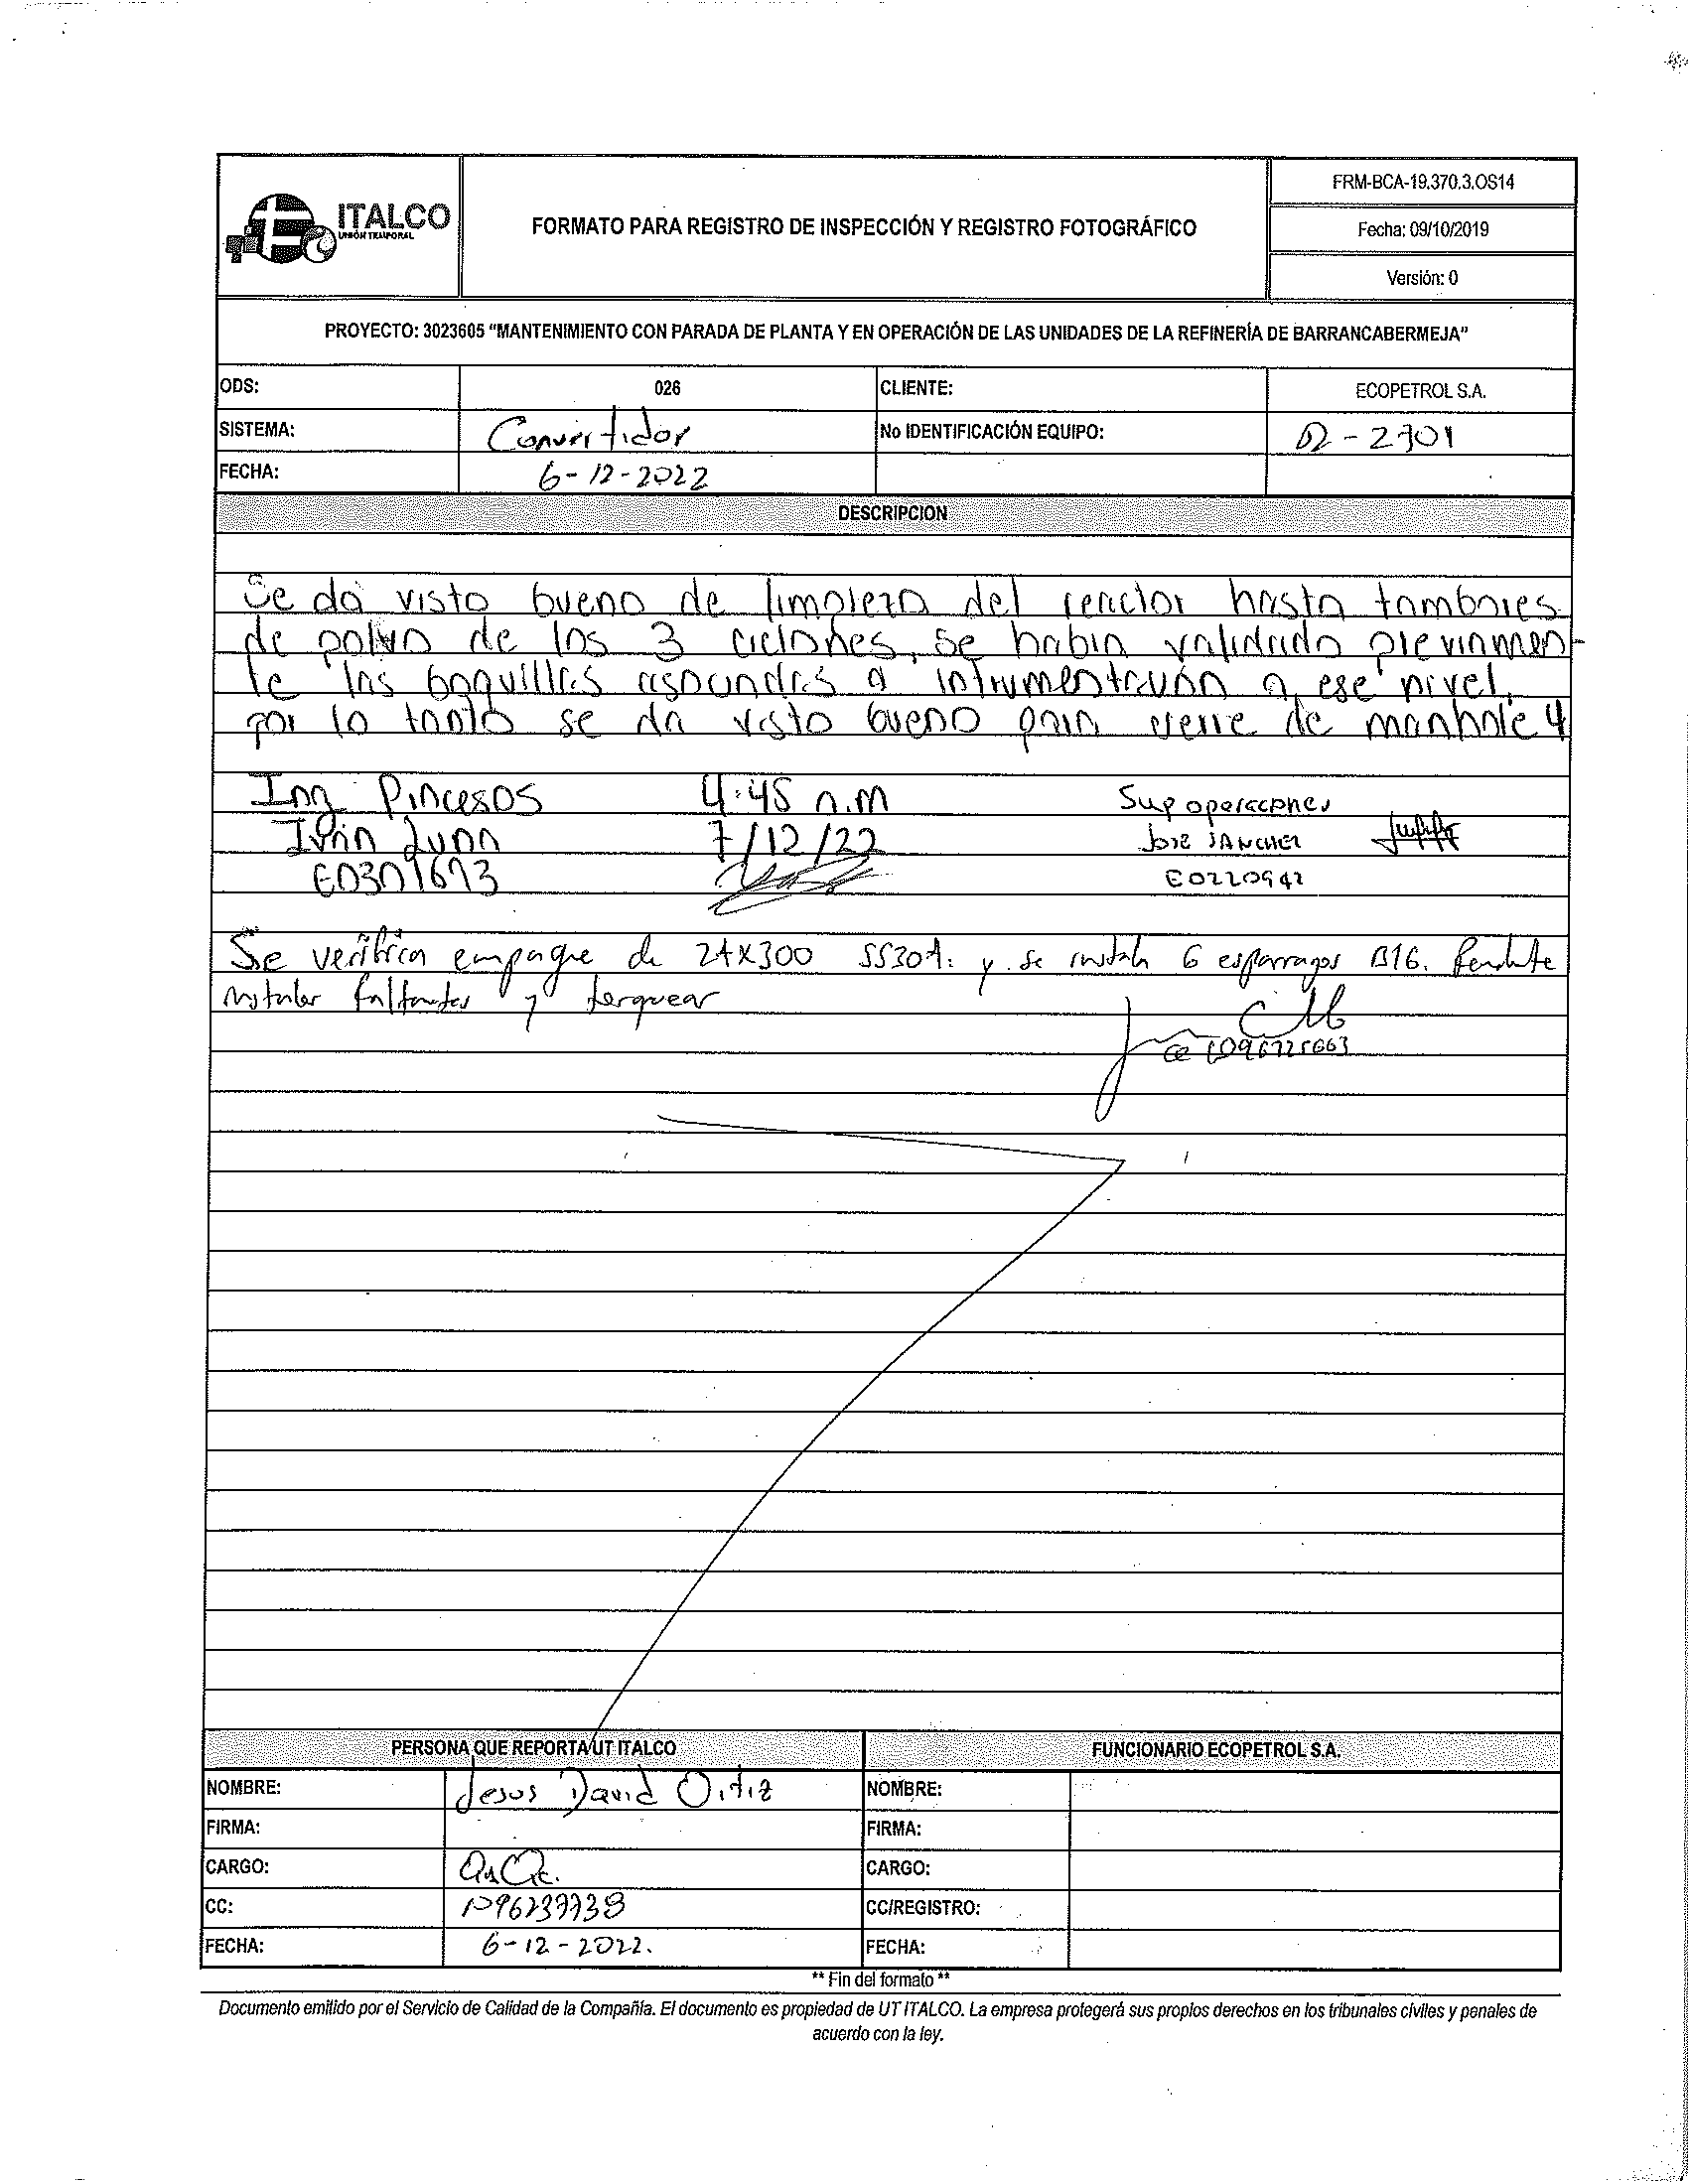 ITALCO
UNIÓN TEMPORAL
FORMATO PARA REGISTRO DE INSPECCIÓN Y REGISTRO FOTOGRÁFICO
FRM-BCA-19.370.3.OS14
Fecha: 09/10/2019
Versión: 0
PROYECTO: 3023605 "MANTENIMIENTO CON PARADA DE PLANTA Y EN OPERACIÓN DE LAS UNIDADES DE LA REFINERÍA DE BARRANCABERMEJA"
ODS: 026 CLIENTE: ECOPETROL S.A.
SISTEMA: Convertidor No IDENTIFICACIÓN EQUIPO: D-2701
FECHA: 6-12-2022
DESCRIPCION
Se da visto bueno de limpieza del reactor hasta tambores
de polvo de los 3 ciclones, se habia validado previamen-
te las boquillas asociadas a intrumentación a ese nivel,
por lo tanto se da visto bueno para cierre de manhole 4
Ing Procesos 4:45 a.m Sup operaciones
Iván Luna 7/12/22 JOSE SANCHEZ
E0301673 E0220942
Se verifica empaque de 24X300 SS304. y se instala 6 esparragos B16. Pendiente
instalar faltantes y torquear
CC 1096725663
PERSONA QUE REPORTA UT ITALCO FUNCIONARIO ECOPETROL S.A.
NOMBRE: Jesus David Ortiz NOMBRE:
FIRMA: FIRMA:
CARGO: QAQC. CARGO:
CC: 1096237738 CC/REGISTRO:
FECHA: 6-12-2022. FECHA:
** Fin del formato **
Documento emitido por el Servicio de Calidad de la Compañía. El documento es propiedad de UT ITALCO. La empresa protegerá sus propios derechos en los tribunales civiles y penales de
acuerdo con la ley.